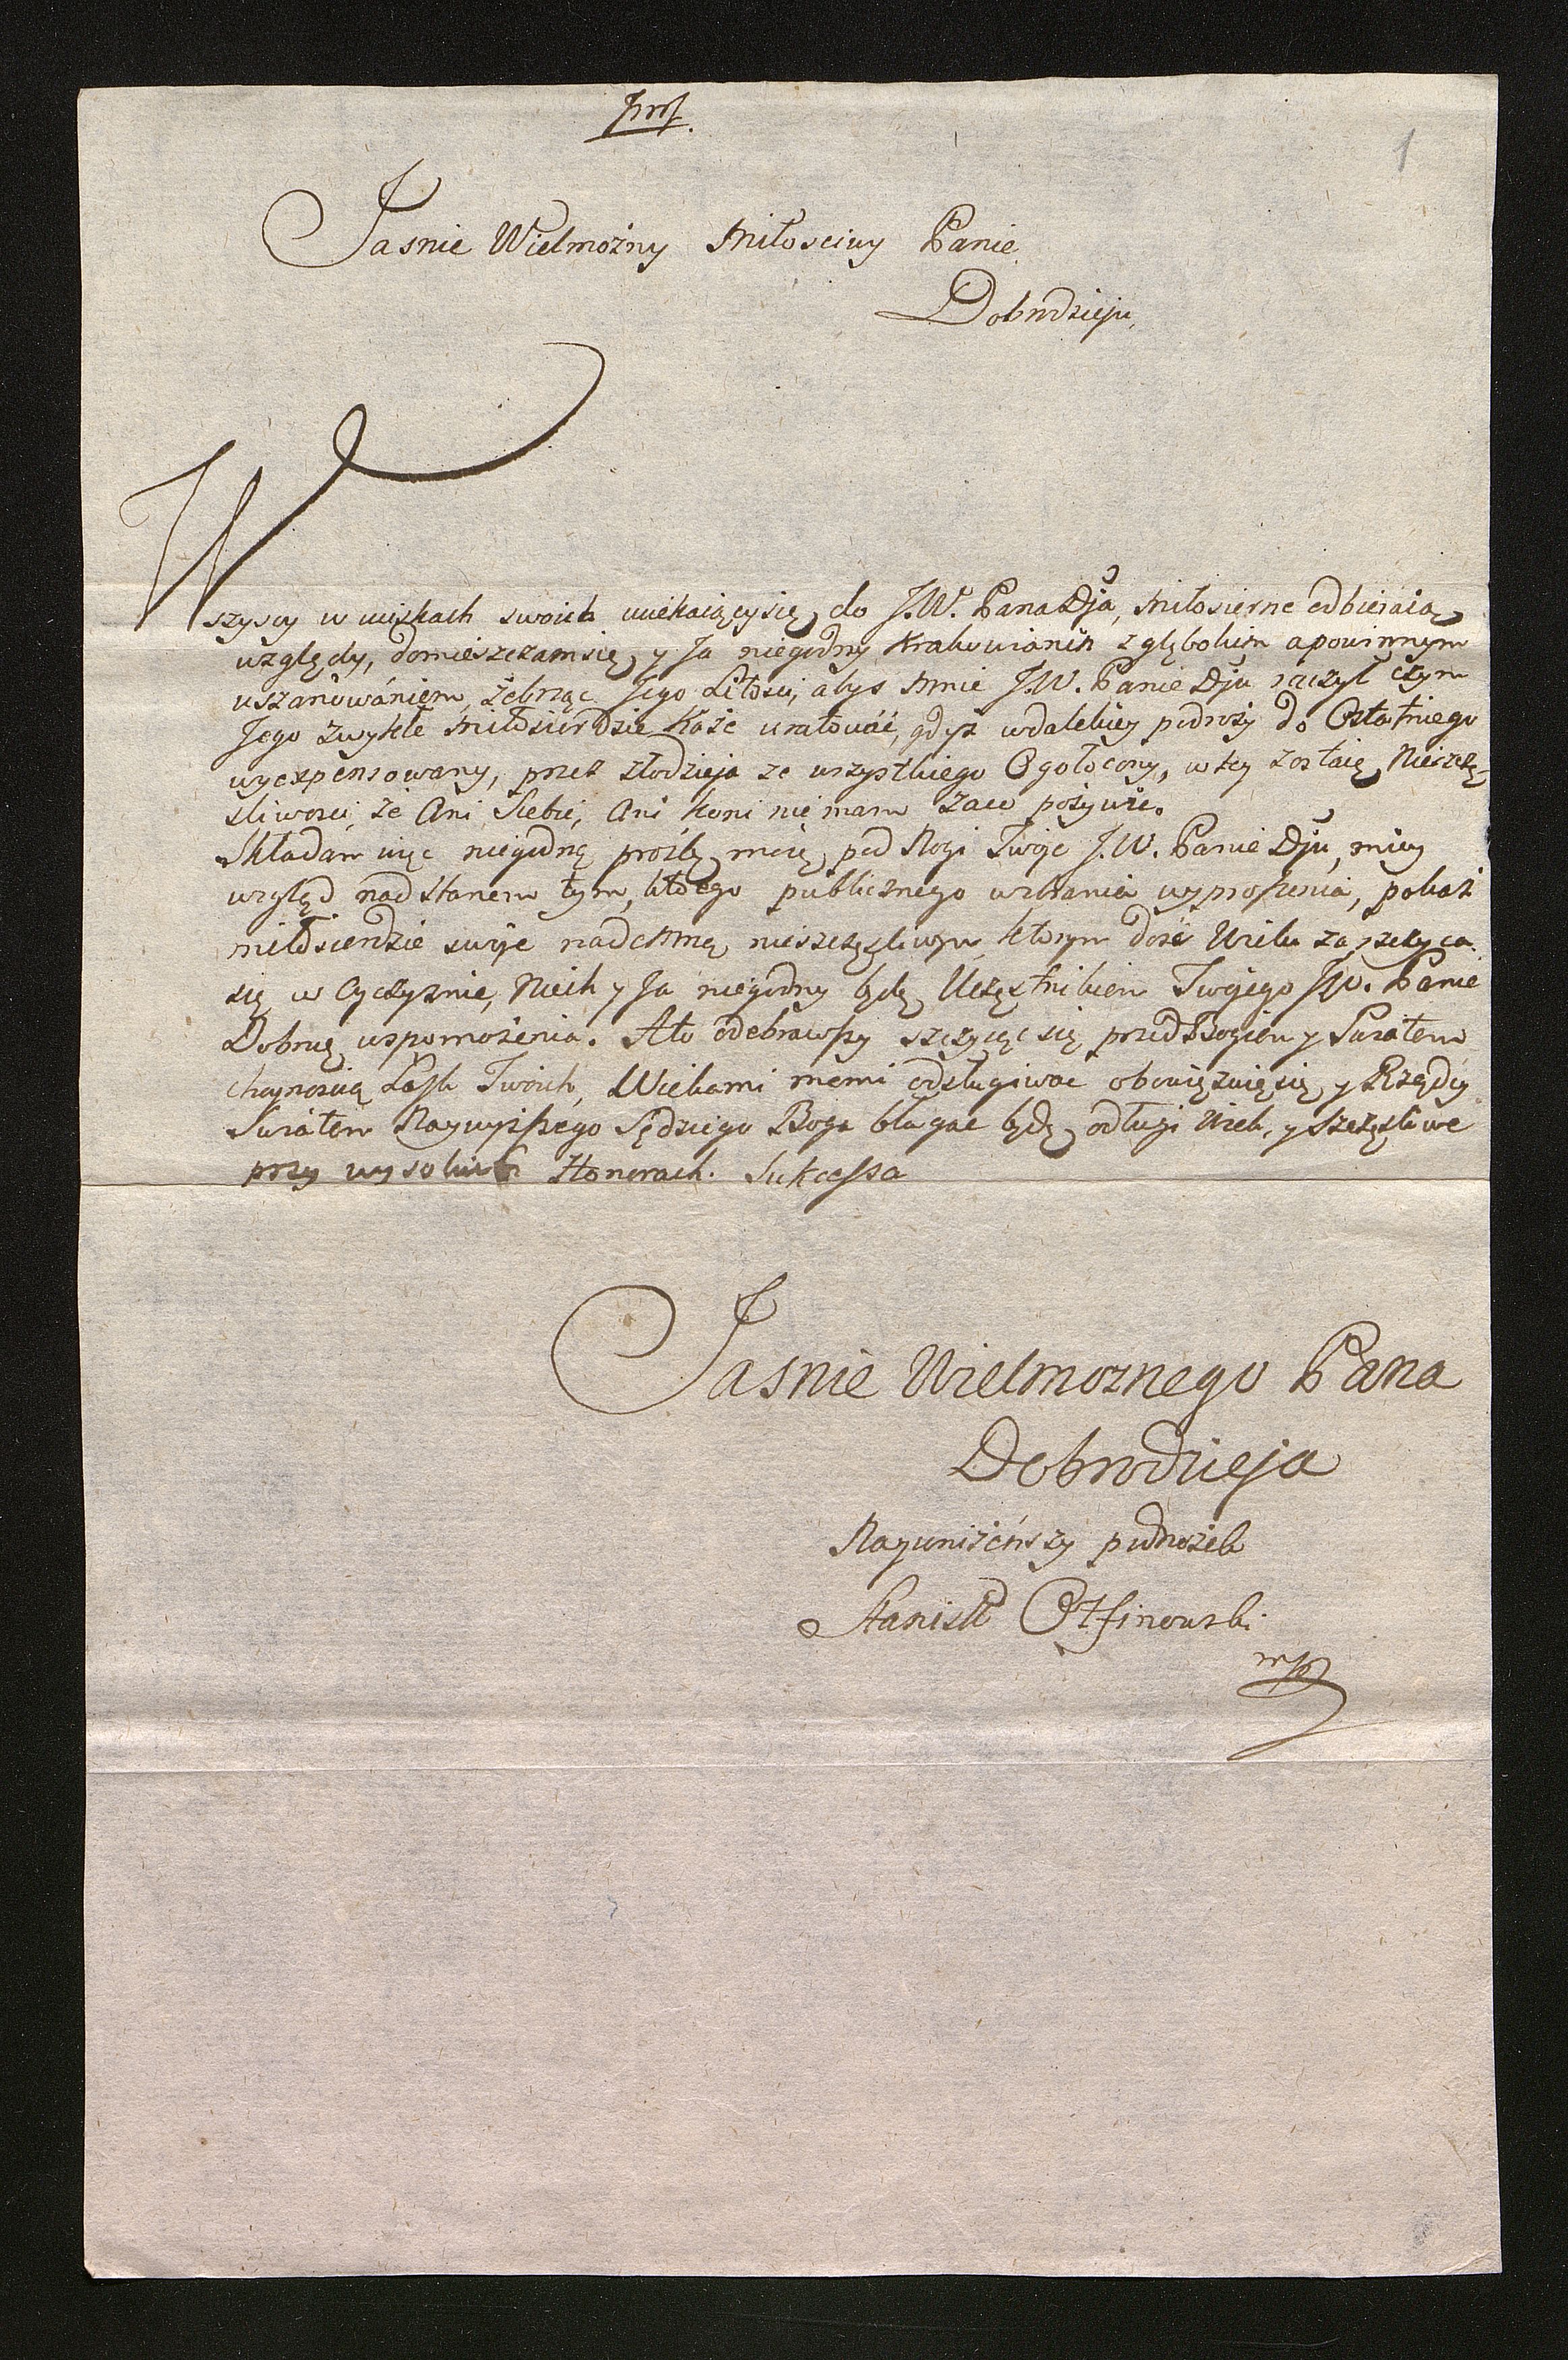 1
Jasnie Wielmożny Miłosciwy Panie
Dobrodzieju
Wszyscy w uciskach swoich uciekaiący się do J.W. Pana Dja, miłosierne odbieraią
względy, domieszczam się y Ja niegodny Krakowianin z głębokim a powinnym
uszanowaniem, żebrząc Jego Litosci, abys mnie J.W. Panie Dju raczył czym
Jego zwykłe miłosierdzie Każe uratować, gdysz w dalekiey podroży do Ostatniego
wyexpensowany, przez złodzieja ze wszystkiego Ogołocony, w tey zostaię Nieszczę-
sliwosci, że Ani Siebie, Ani koni nie mam za co pożywic.
Składam więc niegodną prozbę moię pod Nogi Twoje J.W. Panie Dju, miey
wzgląd nad stanem tym, ktorego publicznego wzbrania wyproszenia, pokaż
miłosierdzie swoje nademną nieszczęsliwym, ktorym dosć Wielu zaszczyca
się w Oyczyznie, Niech y Ja niegodny będę Uczęstnikiem Twojego JW. Panie
Dobru wspomożenia. A to odebrawszy szczycąc się przed Bogiem y Swiatem
choynoscią Łask Twoich, Wiekami memi odsługiwac obowięzuię się y Rządcy
Swiatem Naywyższego Sędziego Boga błagac będę o długi Wiek, y szczęsliwe
przy wysokich Honorach. Sukcessa
Jasnie Wielmoznego Pana
Dobrodzieja
Nayuniżeńszy podnożek
Stanisł Otfinowski
mp